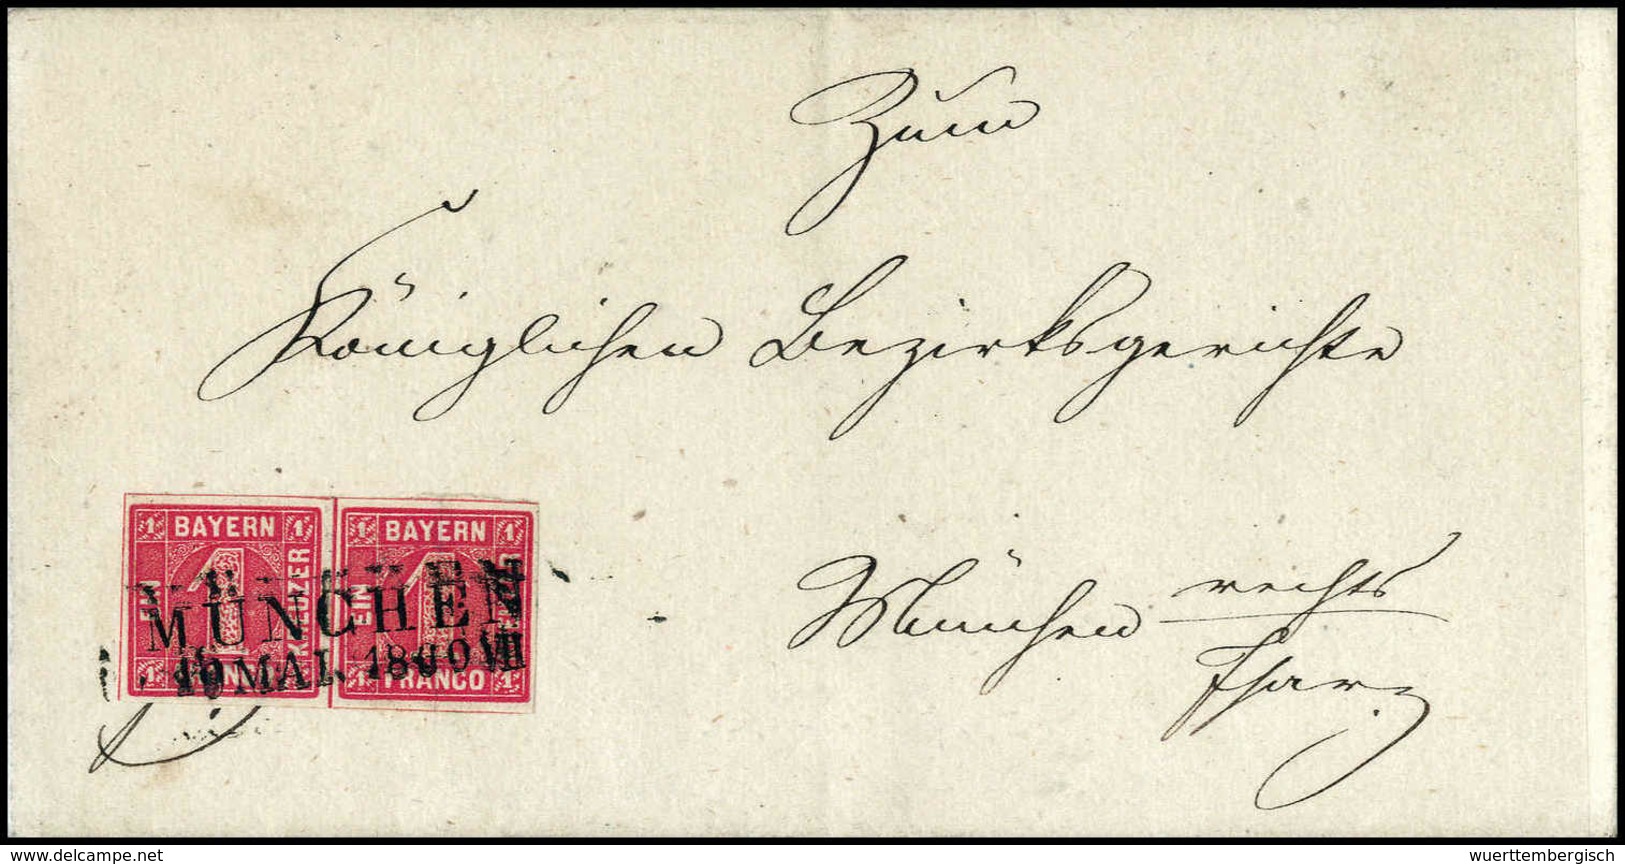 Zum
Königlichen Bezirksgerichte
München rechts
Isar
BAYERN
1 1
EIN
KREUZER
1
FRANCO
1
BAYERN
1 1
EIN
1
FRANCO
1 1
MÜNCHEN
MAI. VII
delcampe.net
wuerttembergisch